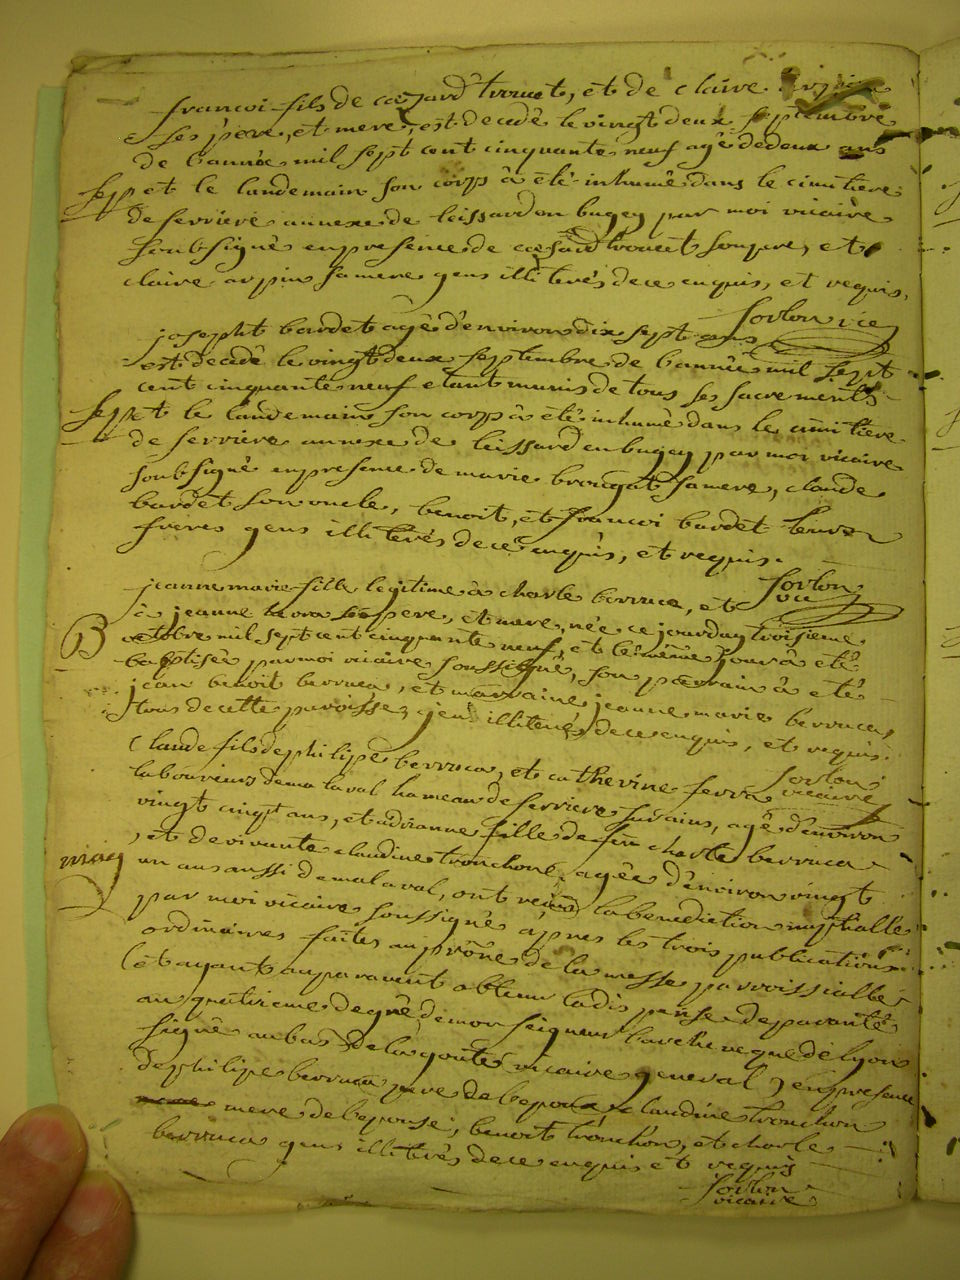 francoi fils de cæzard trouet, et de claire arpin
ses pere, et mere, est decedé le vingt deux septembre
de l'année mil sept cent cinquante neuf agé de deux ans
sep et le landemain son corps à été inhumé dans le cimitiere
de serriere annexe de leissard en bugey par moi vicaire
soubsigné en presence de cæsard trouet son pere, et
claire arpin sa mere gens illiterés de ce enquis, et requis,
sorlon vic
joseph bardet agé d'environ dix sept ans
est decedé le vingt deux septembre de l'année mil sept
cent cinquante neuf etant munis de tous ses sacrements
sep et le landemain son corps à été inhumé dans le cimitiere
de serriere annexe de leissard en bugey par moi vicaire
soubsigné en presence de marie brougat sa mere, claude
bardet son oncle, benoit, et francoi bardet
freres gens illiterés de ce enquis, et requis.
sorlon vic
jeanne marie fille legitime à charle berruca, et
à jeanne pere, et mere, née ce jourduy troisieme
B octobre mil sept cent cinquante neuf, et le même jour à eté
baptisée par moi vicaire soussigné, son parrain à eté
jean benoit berruca, et marraine jeanne marie berruca,
tous de cette paroisse, gens illiterés de ce enquis, et requis.
sorlon vicaire
Claude fils de philipe berruca, et catherine ferra
laboureurs de malaval hameau de serriere sur ains, agé d'environ
vingt cinq ans, et adrianne fille de feu charle berruca
, et de vivante claudine tronchon, agée d'environ vingt
mag un ans aussi de malaval, ont reçus la benediction nuptialle
par moi vicaire soussigné apres les trois publications
ordinaires faites au prône de la messe parroissialle
(et ayant auparavant obtenu la dispense de paranté
au quatrieme degré de monseigneur l'archeveque de lyon
signé au bas vicaire general) en presence
de philipe berruca pere de l'epoux, claudine tronchon
mere de l'epouse, benoit tronchon, et charle
berruca gens illiterés de ce enquis et requis
sorlon
vicaire